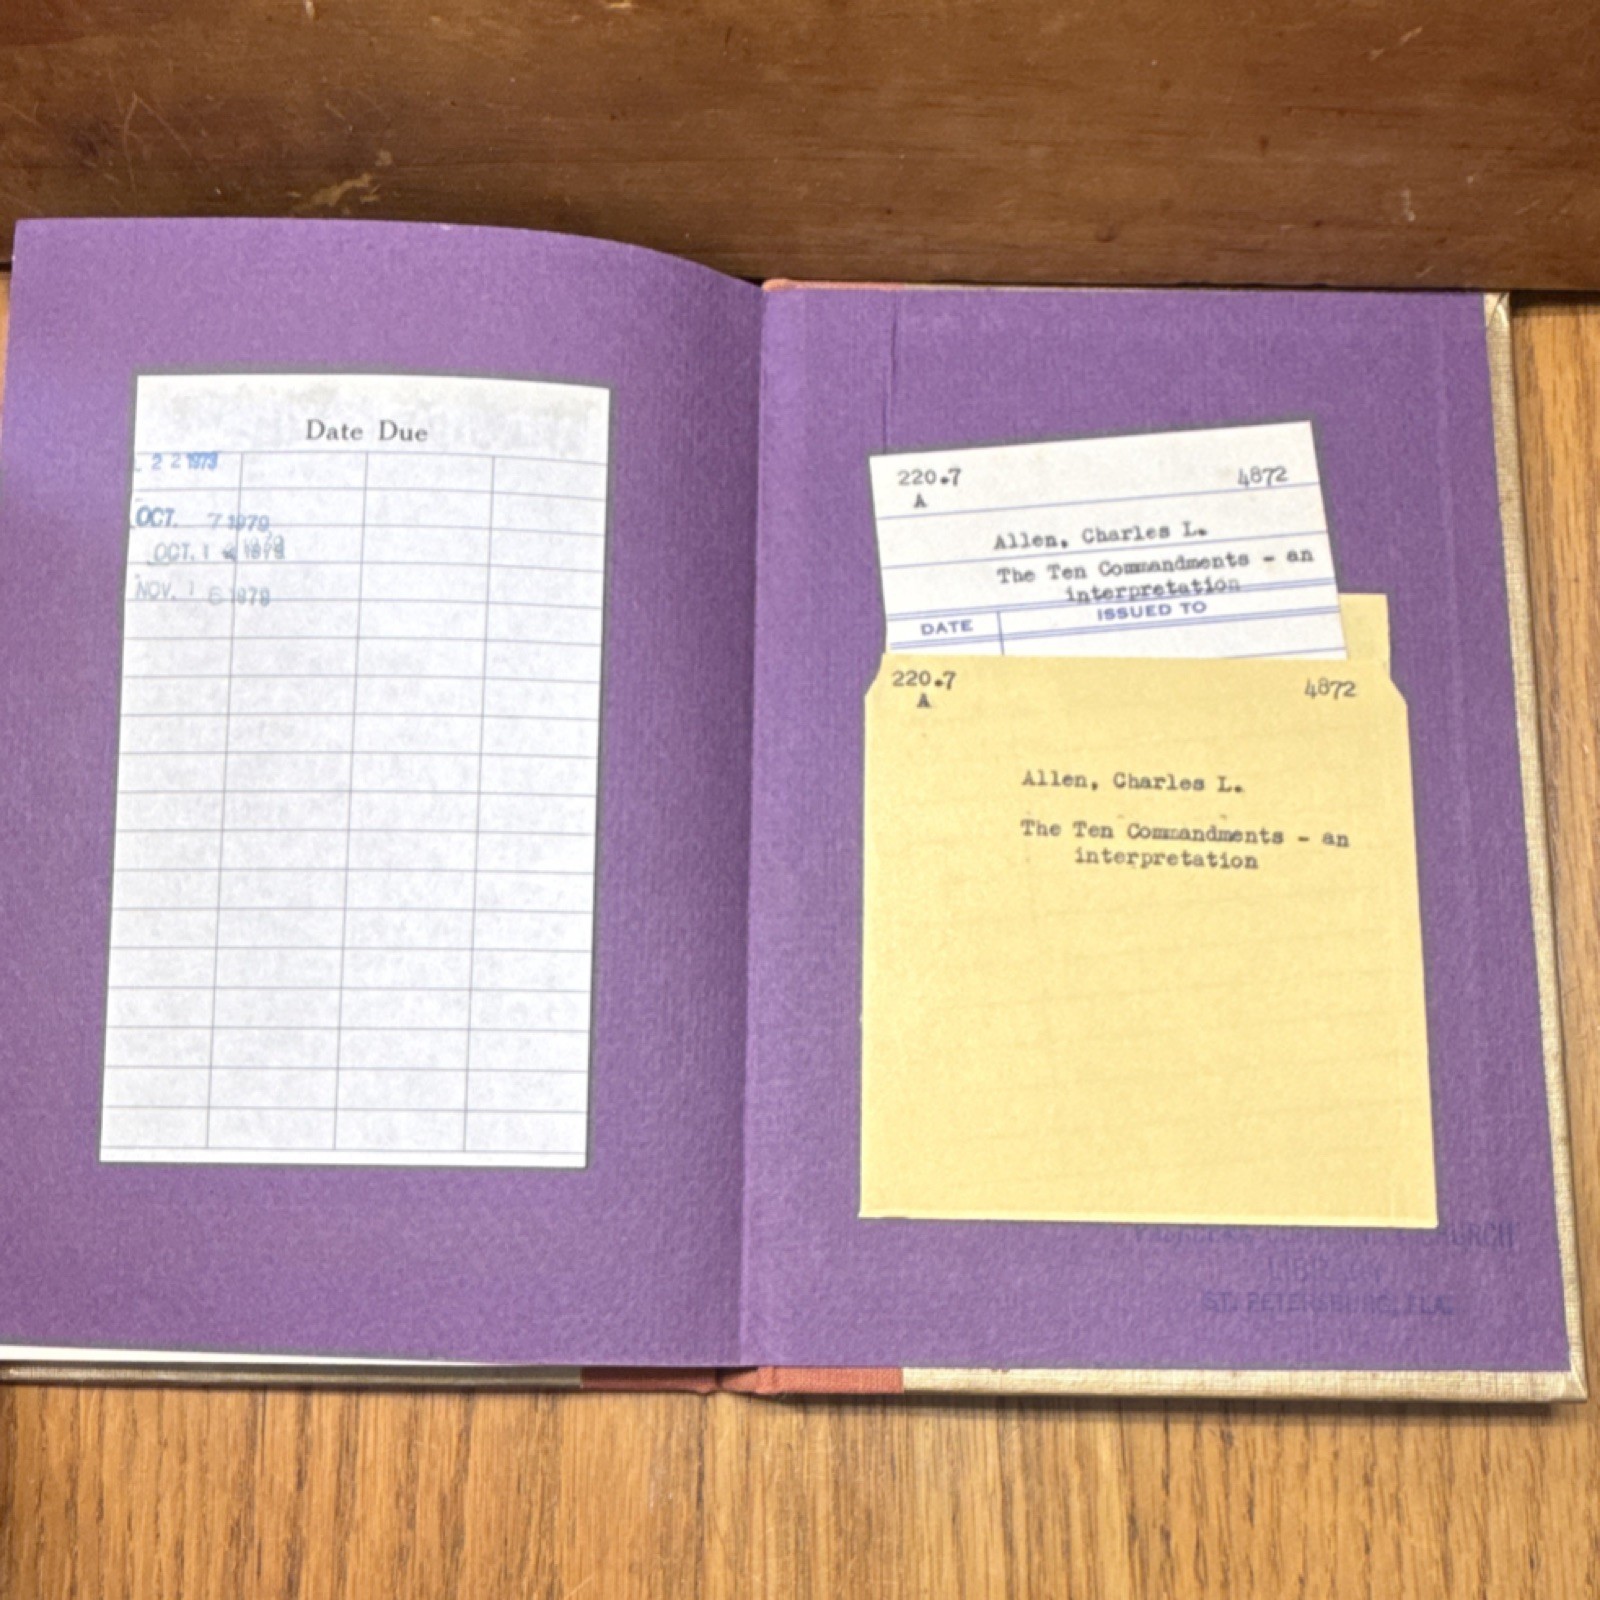 Date Due
2 2 1979
OCT. 7 1979
OCT. 1 1979
NOV. 1 6 1979
220.7 4872
A
Allen, Charles L.
The Ten Commandments - an
interpretation
DATE ISSUED TO
220.7 4872
A
Allen, Charles L.
The Ten Commandments - an
interpretation
CHURCH
LIBRARY
ST. PETERSBURG, FLA.